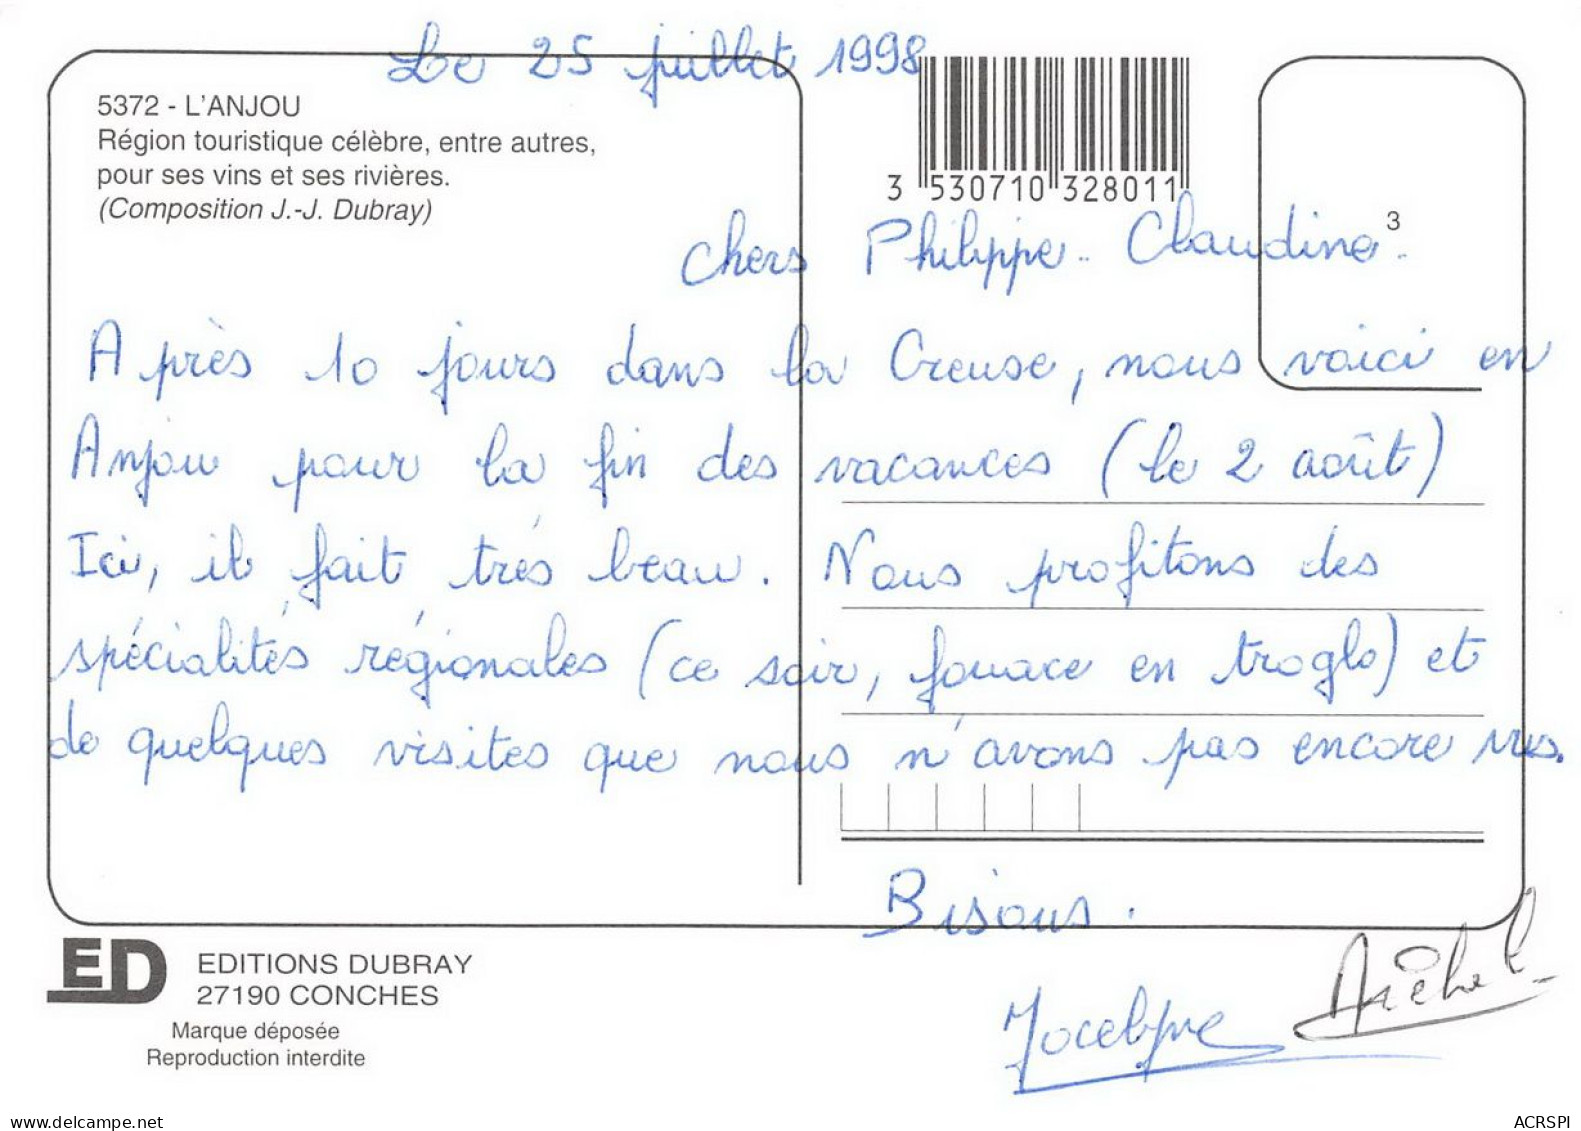 Le 25 juillet 1998
5372 - L'ANJOU
Région touristique célèbre, entre autres,
pour ses vins et ses rivières.
(Composition J.-J. Dubray)
3 530710 328011
3
Chers Philippe.. Claudine..
Après 10 jours dans la Creuse, nous voici en
Anjou pour la fin des vacances (le 2 août)
Ici, il fait très beau. Nous profitons des
spécialités régionales (ce soir, fouace en troglo) et
de quelques visites que nous n'avons pas encore vues.
Bisous.
Jocelyne Michel
ED
EDITIONS DUBRAY
27190 CONCHES
Marque déposée
Reproduction interdite
www.delcampe.net
ACRSPI